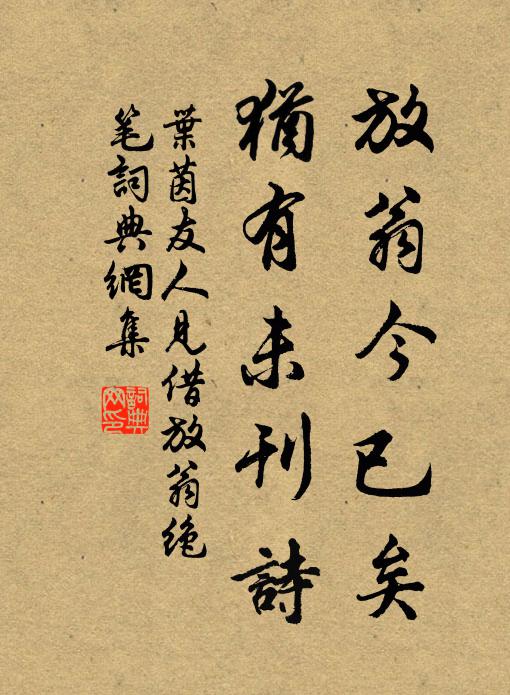 放翁今已矣
猶有未刊詩
葉茵友人見借放翁絶
笔詞典網集
詞典网印